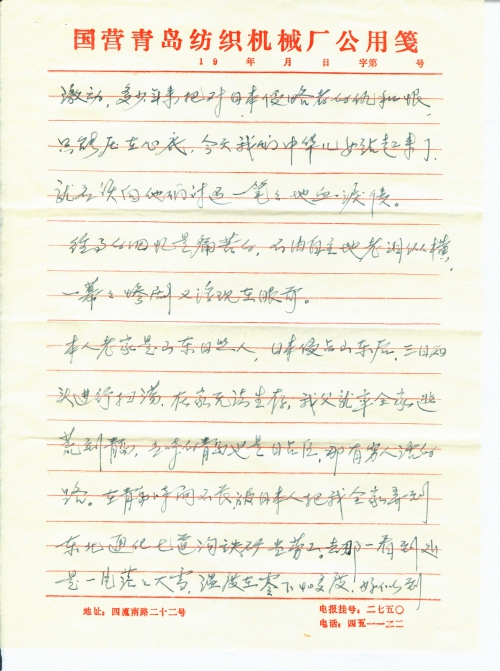 国营青岛纺织机械厂公用笺
19 年 月 日 字第 号
激动，多少年来把对日本侵略者的仇和恨，
只能压在心底，今天我们中华儿女站起来了，
就应该向他们讨还一笔々地血泪债。
往事的回忆是痛苦的，不由自主地老泪纵横，
一幕々惨剧又浮现在眼前。
本人老家是山东日照人，日本侵占山东后，三日两
头进行扫荡，在家无法生存，我父就率全家逃
荒到青岛，当时的青岛也是日占区，那有穷人活的
路。在青岛时间不长，被日本人把我全家弄到
东北通化七道沟铁矿当劳工。去那一看到处
是一片茫々大雪，温度在零下40多度，好似到
地址：四流南路二十二号
电报挂号：二七五〇
电话：四五一一二二